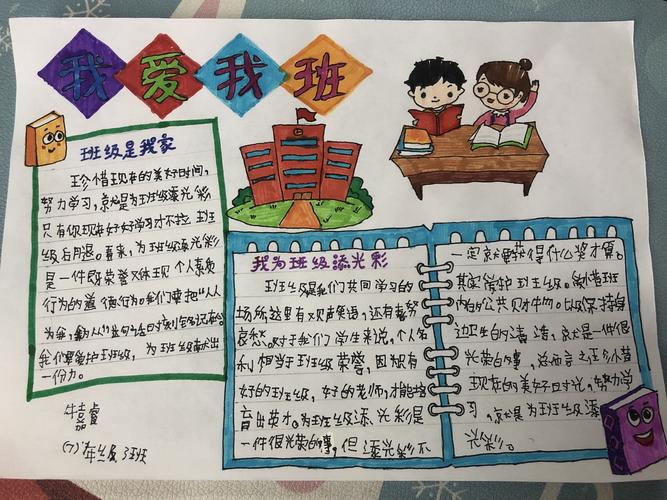 我爱我班
班级是我家
珍惜现在的美好时间,
努力学习,就是为班级添光彩
只有你现在好好学习才不拉班
级后腿。看来,为班级添光彩
是一件既荣誉又体现个人素质
行为的道德行为。我们要把“人人
为我,我为人人”这句话时刻牢记
我们要爱护班级,为班级献出
一份力。
牛嘉睿
(7)年级3班
我为班级添光彩
班级是我们共同学习的
场所这里有欢声笑语,还有喜努
哀愁。对于我们学生来说,个人名
利相当于班级荣誉,因为只有
好的班级,好的老师,才能培
育出英才。为班级添光彩是
一件很光荣的事,但添光彩不
一定就要获得什么奖才算。
其实爱护班级。爱惜班
内的公共财物。以级保持自己
边卫生的清洁,就是一件很
光荣的事,总而言之珍惜
现在的美好时光,努力学
习,就是为班级添
光彩。